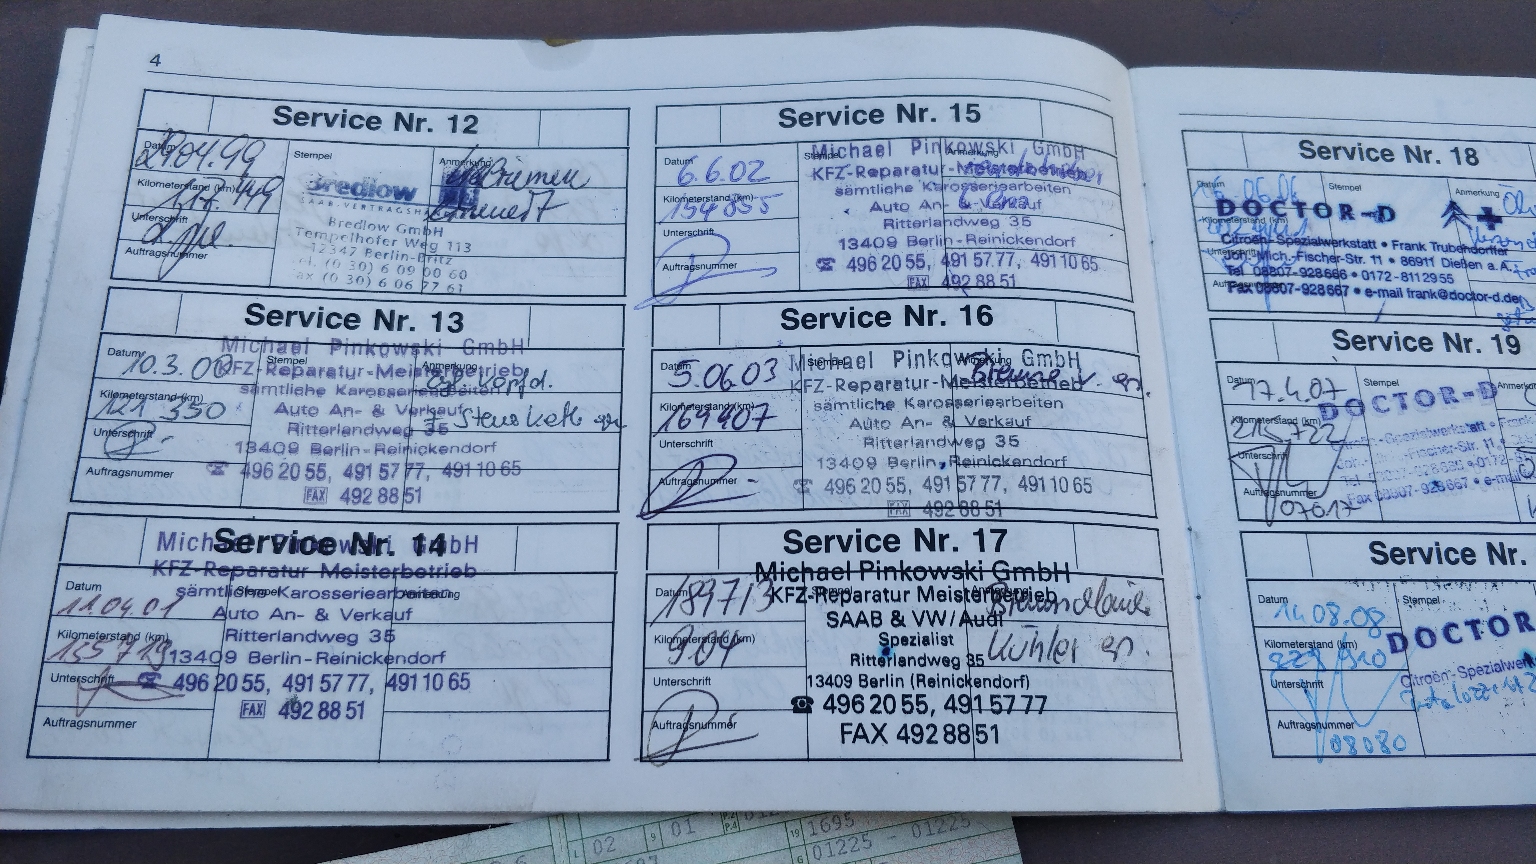 4
Service Nr. 12
Datum 29.04.99
Stempel
Anmerkung
Kilometerstand (km)
Unterschrift
Auftragsnummer
Bredlow
SAAB-VERTRAGSH
Bredlow GmbH
Tempelhofer Weg 113
12347 Berlin-Britz
Tel. (0 30) 6 09 00 60
Fax (0 30) 6 06 77 61
Service Nr. 13
Michael Pinkowski GmbH
Datum 10.3.00
Stempel
Anmerkung
KFZ-Reparatur-Meisterbetrieb
sämtliche Karosseriearbeiten
Kilometerstand (km) 121 350
Auto An- & Verkauf
Ritterlandweg 35
Unterschrift
13409 Berlin-Reinickendorf
Auftragsnummer
496 20 55, 491 57 77, 491 10 65
FAX 492 88 51
Service Nr. 14
Michael Pinkowski GmbH
KFZ-Reparatur Meisterbetrieb
Datum 11.04.01
Stempel
sämtliche Karosseriearbeiten
Auto An- & Verkauf
Kilometerstand (km)
Ritterlandweg 35
13409 Berlin-Reinickendorf
Unterschrift
496 20 55, 491 57 77, 491 10 65
FAX 492 88 51
Auftragsnummer
Service Nr. 15
Michael Pinkowski GmbH
Datum 6.6.02
Stempel
Anmerkung
KFZ-Reparatur-Meisterbetrieb
sämtliche Karosseriearbeiten
Kilometerstand (km) 154 855
Auto An- & Verkauf
Ritterlandweg 35
Unterschrift
13409 Berlin-Reinickendorf
Auftragsnummer
496 20 55, 491 57 77, 491 10 65
FAX 492 88 51
Service Nr. 16
Michael Pinkowski GmbH
Datum 5.06.03
KFZ-Reparatur-Meisterbetrieb
sämtliche Karosseriearbeiten
Kilometerstand (km) 169407
Auto An- & Verkauf
Ritterlandweg 35
Unterschrift
13409 Berlin-Reinickendorf
Auftragsnummer
496 20 55, 491 57 77, 491 10 65
FAX 492 88 51
Service Nr. 17
Michael Pinkowski GmbH
Datum 189713
KFZ-Reparatur Meisterbetrieb
SAAB & VW/Audi
Kilometerstand (km) 9.04
Spezialist
Kühler en.
Ritterlandweg 35
Unterschrift
13409 Berlin (Reinickendorf)
Auftragsnummer
496 20 55, 491 57 77
FAX 492 88 51
Service Nr. 18
Datum
Stempel
Anmerkung
DOCTOR-D
Kilometerstand (km)
Citroën-Spezialwerkstatt • Frank Trubendorffer
Unterschrift
Joh.-Mich.-Fischer-Str. 11 • 86911 Dießen a.A.
Tel 08807-928666 • 0172-8112955
Fax 08807-928667 • e-mail frank@doctor-d.de
Service Nr. 19
Datum 17.4.07
Stempel
DOCTOR-D
Kilometerstand (km) 215 722
Citroën-Spezialwerkstatt • Frank
Unterschrift
Joh.-Mich.-Fischer-Str. 11 •
Tel 08807-928666 • 0172-
Fax 08807-928667 • e-mail
Auftragsnummer
Service Nr.
Datum 14.08.08
Stempel
DOCTOR
Kilometerstand (km)
Citroën-Spezialwerk
Unterschrift
Auftragsnummer 08080
02
9 01
P.2
P.4
19 1695
01225 - 01225